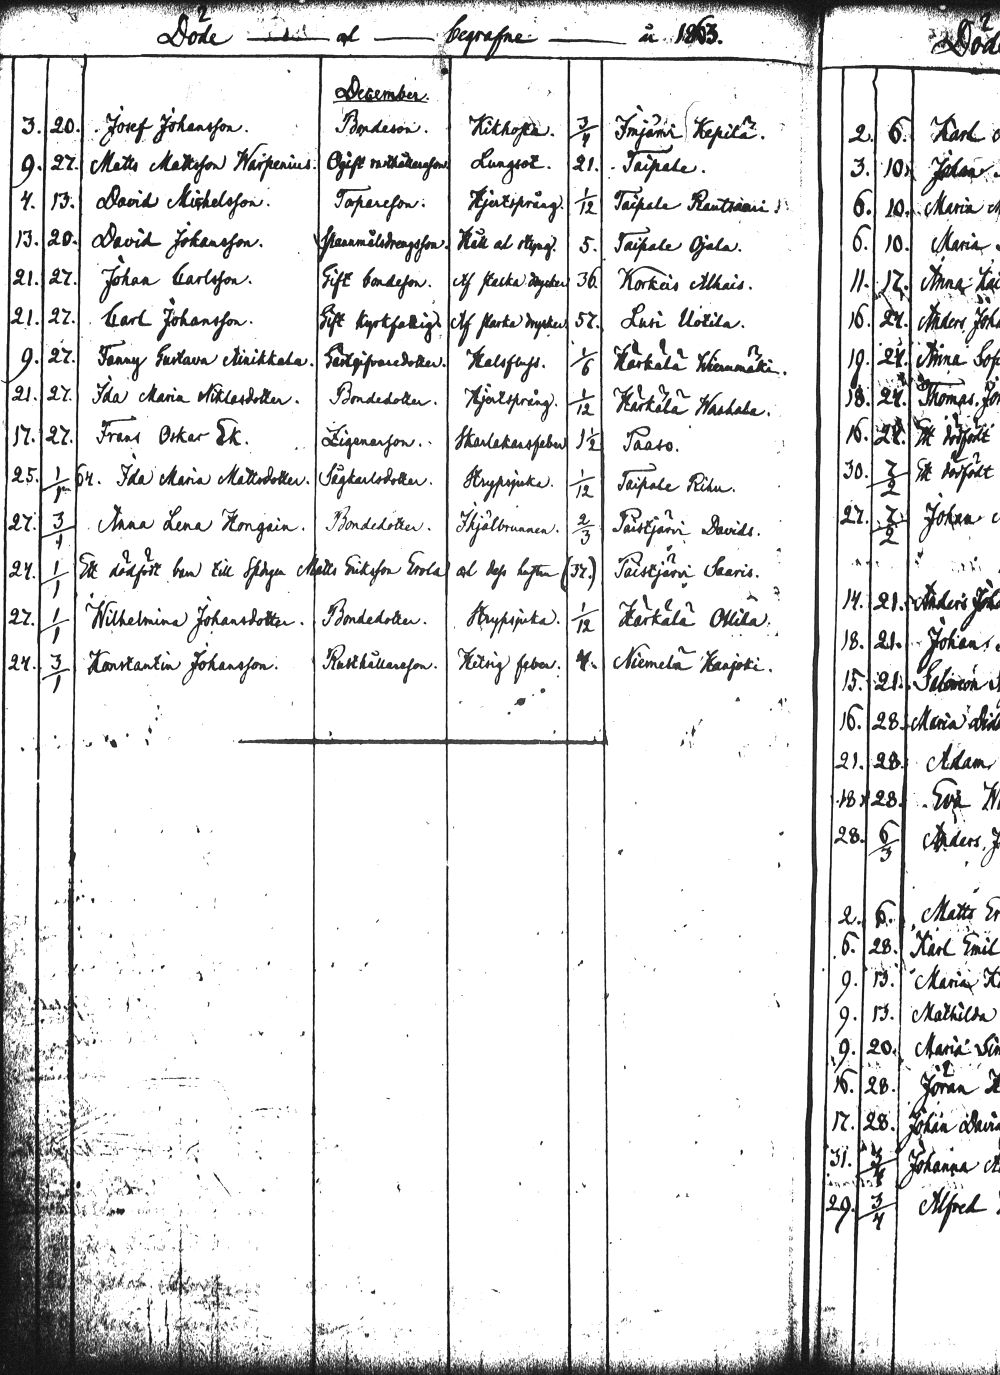 Döde — och — begrafne — år 1863.
December.
3. 20. Josef Johansson. Bondeson. Kikhosta. 3/4 Imjärvi Kepilä.
9. 27. Matts Mattsson Warpenius. Ogift Lungsot. 21. Taipale.
4. 13. David Michelsson. Torpareson. Hjertsprång. 1/12 Taipale Rautsuari
13. 20. David Johansson. Håll och styng. 5. Taipale Ojala.
21. 27. Johan Carlsson. Gift bondeson. Af starka drycker 36. Korkeis Alhais.
21. 27. Carl Johansson. Gift kyrkfattig. Af starka drycker. 57. Lusi Uotila.
9. 27. Fanny Gustava Ainikkala. Gästgifvaredotter. Halsfluss. 1/6 Härkälä Wiermmäki.
21. 27. Ida Maria Niklasdotter. Bondedotter. Hjertsprång. 1/12 Härkälä Washala.
17. 27. Frans Oskar Ek. Zigenarson. Skarlakansfeber 1 1/2 Paaso.
25. 1/1 64. Ida Maria Mattsdotter. Sågkarlsdotter. Strypsjuka. 1/12 Taipale Rihu.
27. 3/1 Anna Lena Hongain. Bondedotter. 2/3 Paistjärvi Davids.
24. 1/1 Ett dödfödt barn till Matts Eriksson Erola och dess hustru (37.) Paistjärvi Saaris.
27. 1/1 Wilhelmina Johansdotter. Bondedotter. Strypsjuka. 1/12 Härkälä Ollila.
24. 3/1 Konstantin Johansson. Rusthållareson. Hetsig feber. 4. Niemelä Harjoki.
Döde
2. 6. Karl
3. 10. Johan
6. 10. Maria
6. 10. Maria
11. 17. Anna
16. 24. Anders
19. 24. Anna
18. 24. Thomas
16. 24. Ett dödfödt
30. 7/2 Ett dödfödt
27. 7/2 Johan
14. 21. Anders
18. 21. Johan
15. 21. Salomon
16. 28. Maria
21. 28. Adam
18. 28. Eva
28. 6/3 Anders
2. 6. Matts
6. 28. Karl Emil
9. 13. Maria
9. 13. Mathilda
9. 20. Maria
16. 28. Jöran
17. 28. Johan David
31. 3/4 Johanna
29. 3/4 Alfred